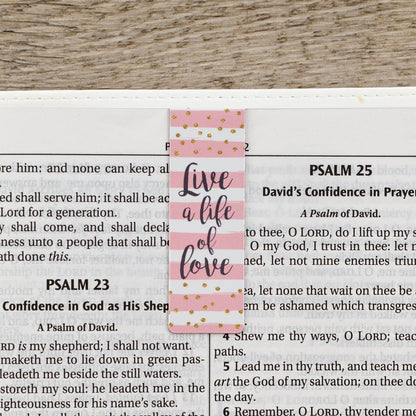 ore him: and none can keep al
ed shall serve him; it shall be ac
Lord for a generation.
y shall come, and shall decla
usness unto a people that shall b
ath done this.
PSALM 23
Confidence in God as His Shep
A Psalm of David.
ORD is my shepherd; I shall not want.
maketh me to lie down in green pas-
leadeth me beside the still waters.
estoreth my soul: he leadeth me in the
righteousness for his name's sake.
Live
a life
of
love
2
PSALM 25
David's Confidence in Prayer
A Psalm of David.
to thee, O LORD, do I lift up my s
O my God, I trust in thee: let
let not mine enemies triun
ea, let none that wait on thee be a
m be ashamed which transgres
4 Shew me thy ways, O LORD; teach
paths.
5 Lead me in thy truth, and teach me
art the God of my salvation; on thee do
the day.
6 Remember, O LORD, thy tender